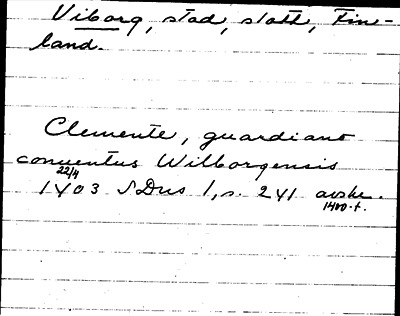 Viborg, stad, slott, Fin-
land.
Clemente, guardiano
conventus Wilborgensis
22/4
1403 SDns 1, s. 241 avskr.
1400-t.